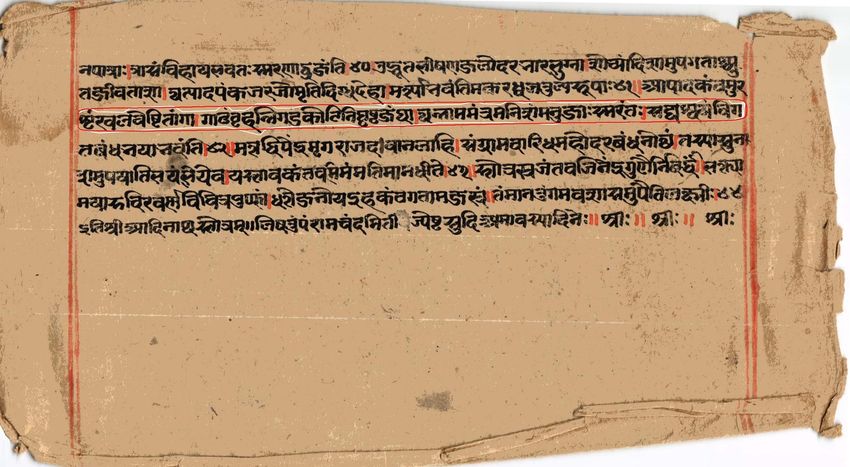 नपात्राः त्रासं विहाय भवतः स्मरणाद्व्रजंति ४० उद्भूतभीषणजलोदरभारभुग्ना शोच्यां दिशामुपगताश्च्यु
तजीविताशा त्वत्पादपंकजरजोमृतदिग्धदेहा मर्त्या भवंति मकरध्वजतुल्यरूपाः ४१ आपादकंठमुर
शृंखलवेष्टितांगा गाढं बृहन्निगडकोटिनिघृष्टजंघा त्वन्नाममंत्रमनिशं मनुजाः स्मरंतः सद्यः स्वयं विग
तबंधभया भवंति ४२ मत्तद्विपेंद्रमृगराजदावानलाहि संग्रामवारिधिमहोदरबंधनोत्थं तस्याशु ना
शमुपयाति भयं भियेव यस्तावकं स्तवमिमं मतिमानधीते ४३ स्तोत्रस्रजं तव जिनेंद्र गुणैर्निबद्धां भक्त्या
मया रुचिरवर्णविचित्रपुष्पां धत्ते जनो य इह कंठगतामजस्रं तं मानतुंगमवशा समुपैति लक्ष्मीः ४४
इति श्रीआदिनाथस्तोत्रम् लिषतुं पं रामचंद मिती ज्येष्ट सुदि अमावस्या दिनेः ॥ श्रीः ॥ श्रीः ॥ श्रीः